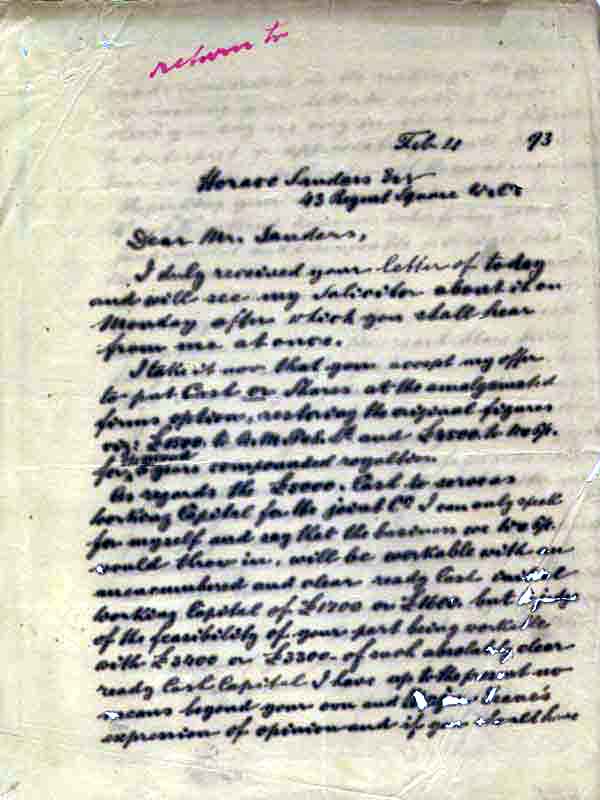 return to
Feb. 4 93
Horace Sanders Esq
43 Regent Square W.C.
Dear Mr. Sanders,
I duly received your letter of today
and will see my Solicitor about it on
Monday after which you shall hear
from me at once.
I take it now that you accept my offer
to put Cash or Shares at the amalgamated
firms option, restoring the original figures
viz: to and to
for years compounded royalties.
As regards the Cash to serve as
working Capital for the joint Co I can only speak
for myself and say that the business we
would throw in, will be workable with an
unencumbered and clear ready Cash
working Capital of £1700 or £1600. but
of the feasibility of your part being workable
with £3400 or £3300. of such absolutely clear
ready Cash Capital I have up to the present no
means beyond your own and
expression of opinion and if you have